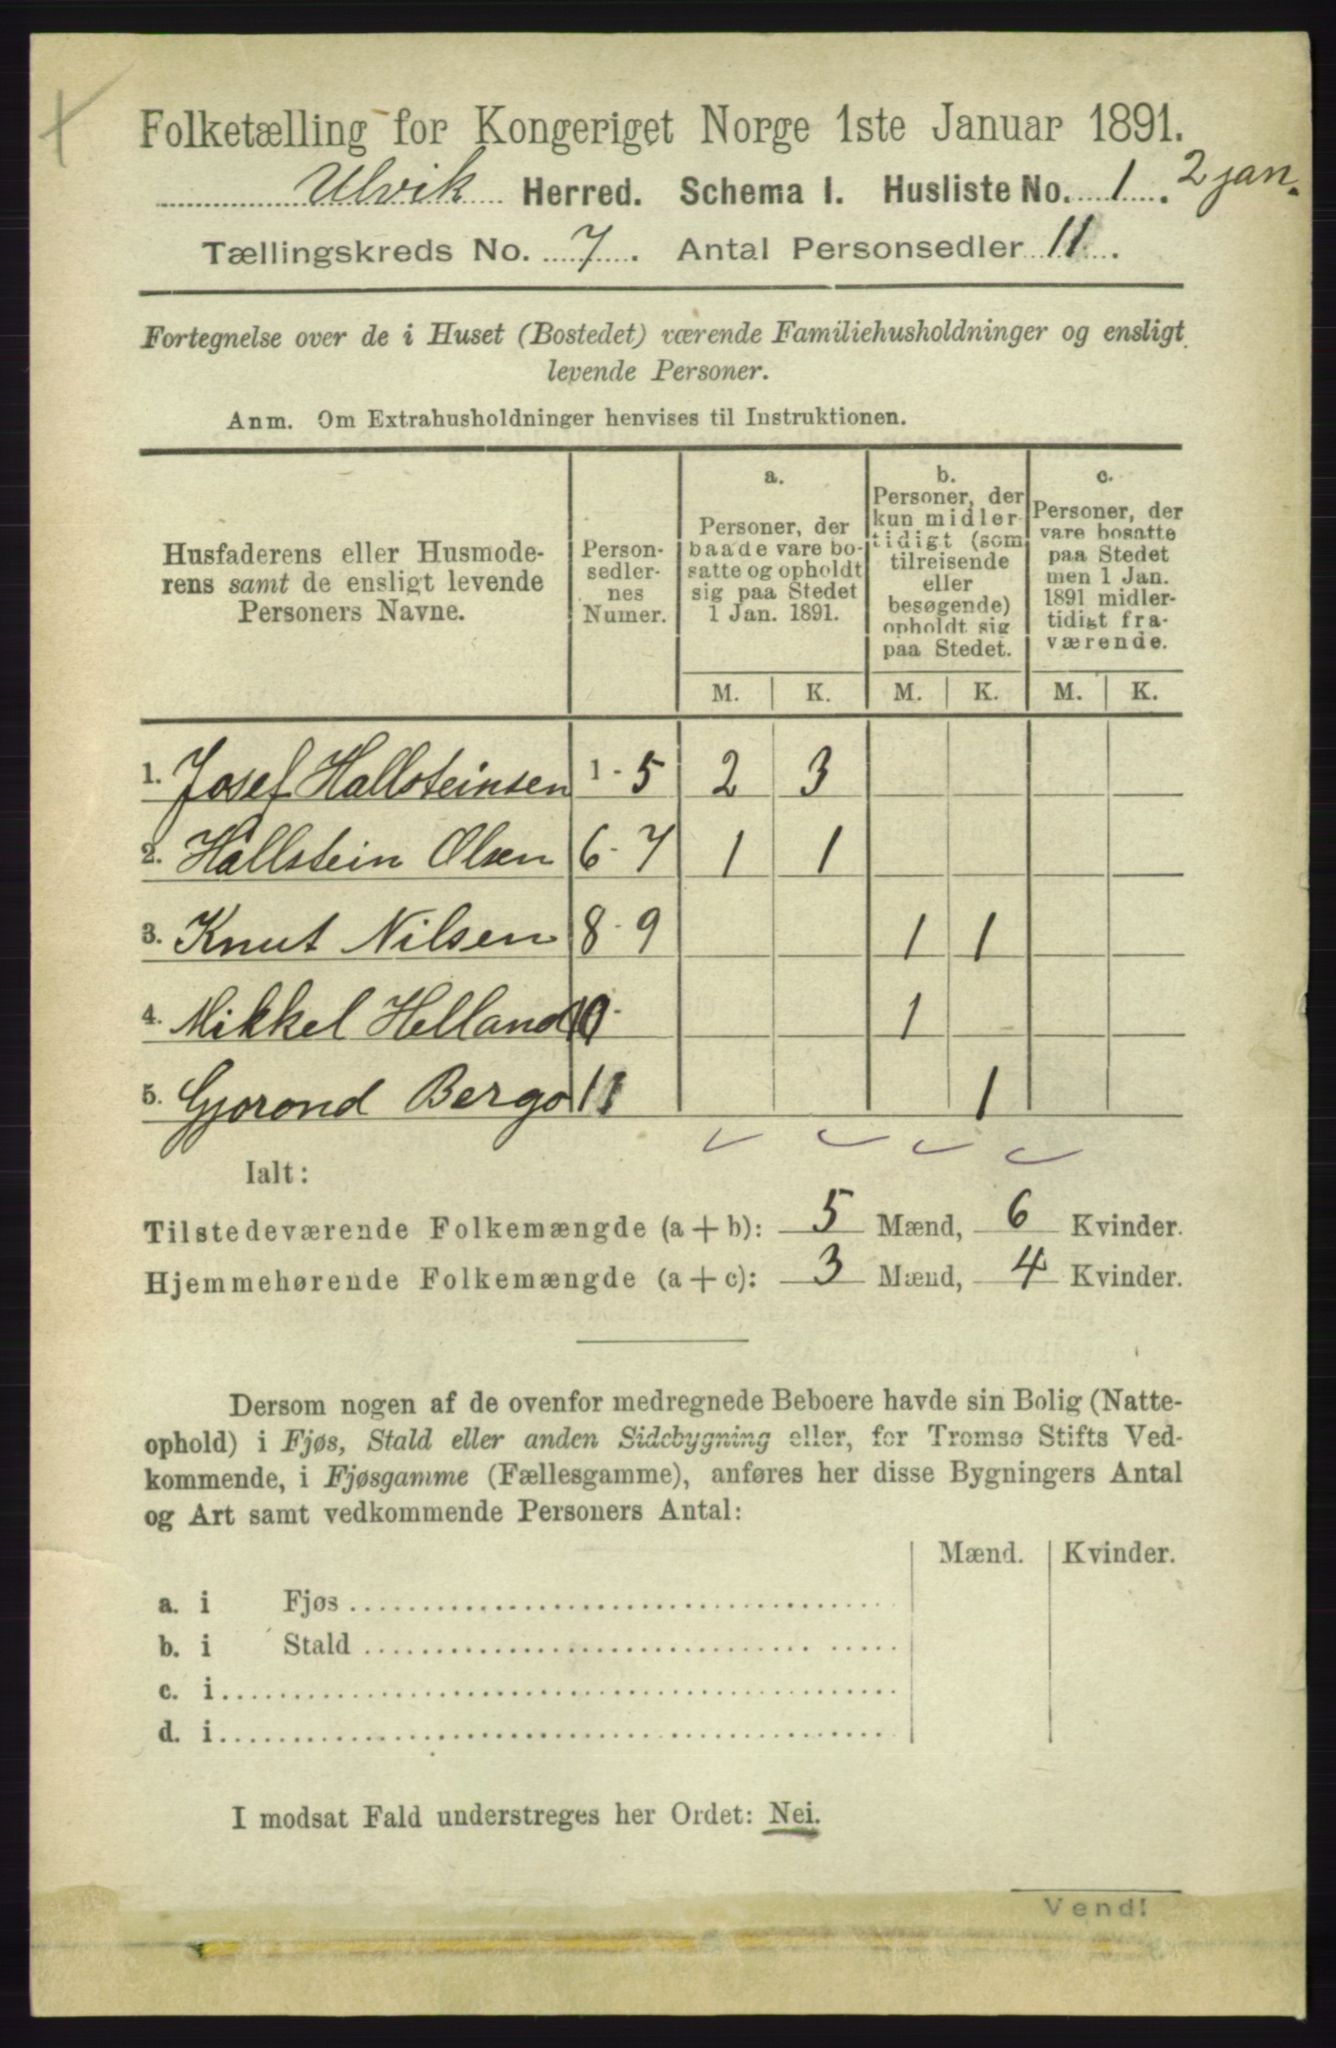 Folketælling for Kongeriget Norge 1ste Januar 1891.
Ulvik Herred. Schema I. Husliste No. 1. 2 jan.
Tællingskreds No. 7. Antal Personsedler 11.
Fortegnelse over de i Huset (Bostedet) værende Familiehusholdninger og ensligt
levende Personer.
Anm. Om Extrahusholdninger henvises til Instruktionen.
Husfaderens eller Husmode-
rens samt de ensligt levende
Personers Navne.
Person-
sedler-
nes
Numer.
a.
Personer, der
baade vare bo-
satte og opholdt
sig paa Stedet
1 Jan. 1891.
b.
Personer, der
kun midler-
tidigt (som
tilreisende
eller
besøgende)
opholdt sig
paa Stedet.
c.
Personer, der
vare bosatte
paa Stedet
men 1 Jan.
1891 midler-
tidigt fra-
værende.
M. K. M. K. M. K.
1. Josef Hallsteinsen 1-5 2 3
2. Hallstein Olsen 6-7 1 1
3. Knut Nilsen 8-9 1 1
4. Mikkel Helland 10 1
5. Gjorond Bergo 11 1
Ialt:
Tilstedeværende Folkemængde (a + b): 5 Mænd, 6 Kvinder.
Hjemmehørende Folkemængde (a + c): 3 Mænd, 4 Kvinder.
Dersom nogen af de ovenfor medregnede Beboere havde sin Bolig (Natte-
ophold) i Fjøs, Stald eller anden Sidebygning eller, for Tromsø Stifts Ved-
kommende, i Fjøsgamme (Fællesgamme), anføres her disse Bygningers Antal
og Art samt vedkommende Personers Antal:
Mænd. Kvinder.
a. i Fjøs
b. i Stald
c. i
d. i
I modsat Fald understreges her Ordet: Nei.
Vend!